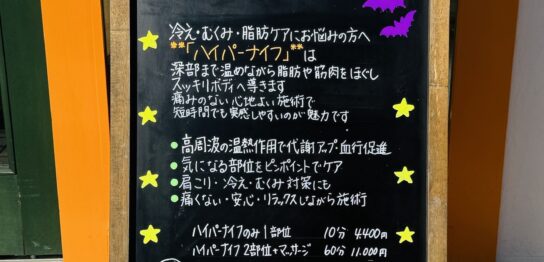 冷え・むくみ・脂肪ケアにお悩みの方へ
"「ハイパーナイフ」"は
深部まで温めながら脂肪や筋肉をほぐし
スッキリボディへ導きます
痛みのない心地よい施術で
短時間でも実感しやすいのが魅力です
●高周波の温熱作用で代謝アップ・血行促進
●気になる部位をピンポイントでケア
●肩こり・冷え・むくみ対策にも
●痛くない・安心・リラックスしながら施術
ハイパーナイフのみ1部位 10分 4,400円
ハイパーナイフ2部位+マッサージ 60分 11,000円